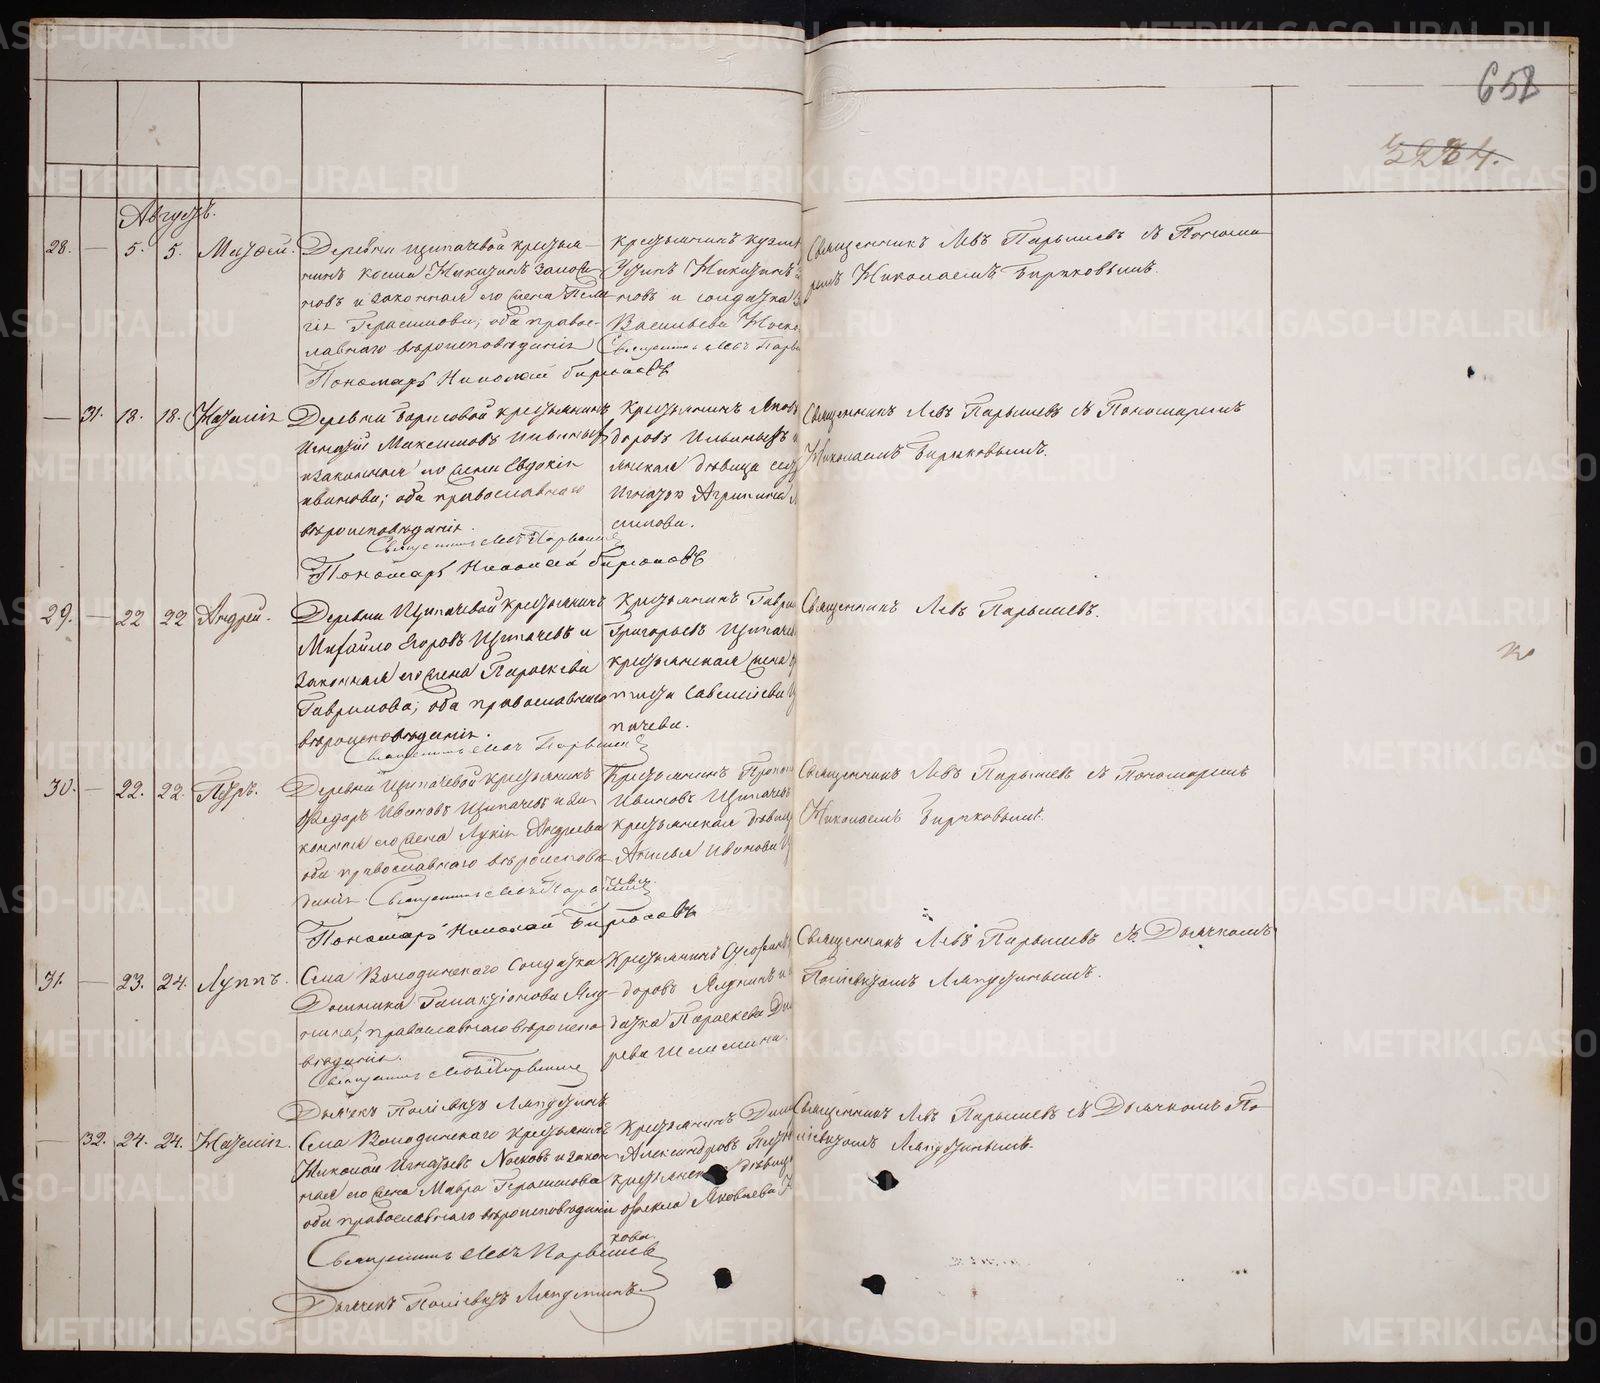 658
3284.
Августъ.
28. — 5. 5.
Деревни Щипачевой крестья-
нинъ Косма Никитинъ
новъ и законная его жена Пела-
гія Герасимова; оба правос-
лавнаго вѣроисповѣданія
Пономарь Николай Бирюковъ
крестьянинъ
Никитинъ
новъ и солдатка
Васильева
Священникъ Левъ Парышевъ съ Понома-
ремъ Николаемъ Бирюковымъ.
— 31. 18. 18. Наталія
Деревни Борисовой крестьянинъ
Игнатій Максимовъ Ильиныхъ
и законная его жена Евдокія
Иванова; оба православнаго
вѣроисповѣданія.
Священникъ Левъ Парышевъ
Пономарь Николай Бирюковъ
Крестьянинъ Яковъ
доровъ Ильиныхъ и
янская дѣвица
Игнатія Агрипина
симова.
Священникъ Левъ Парышевъ съ Пономаремъ
Николаемъ Бирюковымъ.
29. — 22 22 Андрей.
Деревни Щипачевой крестьянинъ
Михайло Егоровъ Щипачевъ и
законная его жена Параскева
Гаврилова; оба православнаго
вѣроисповѣданія.
Священникъ Левъ Парышевъ
Крестьянинъ Гаври
Григорьевъ Щипачев
крестьянская жена
Савельева
пачева.
Священникъ Левъ Парышевъ.
30. — 22. 22. Петръ.
Деревни Щипачевой крестьянинъ
Федоръ Ивановъ Щипачевъ и за-
конная его жена Лукія Андреева
оба православнаго вѣроисповѣ-
данія. Священникъ Левъ Парышевъ
Пономарь Николай Бирюковъ
Крестьянинъ
Ивановъ Щипачевъ
крестьянская дѣвица
Иванова
чева.
Священникъ Левъ Парышевъ съ Пономаремъ
Николаемъ Бирюковымъ.
31. — 23. 24. Луппъ.
Села Володинскаго Солдатка
Домника Галактіонова
православнаго вѣроиспо-
вѣданія.
Священникъ Левъ Парышевъ
Дьячекъ Поліевктъ Ляпустинъ
Крестьянинъ
доровъ
датка Параскева
рева
Священникъ Левъ Парышевъ съ Дьячкомъ
Поліевктомъ Ляпустинымъ.
— 32. 24. 24. Наталія.
Села Володинскаго крестьянинъ
Николай Игнатьевъ Носковъ и закон-
ная его жена Мавра Герасимова
оба православнаго вѣроисповѣданія
Священникъ Левъ Парышевъ
Дьячекъ Поліевктъ Ляпустинъ.
Крестьянинъ
Александровъ
крестьянская дѣвица
Фекла Яковлева
кова.
Священникъ Левъ Парышевъ съ Дьячкомъ По-
ліевктомъ Ляпустинымъ.
METRIKI.GASO-URAL.RU